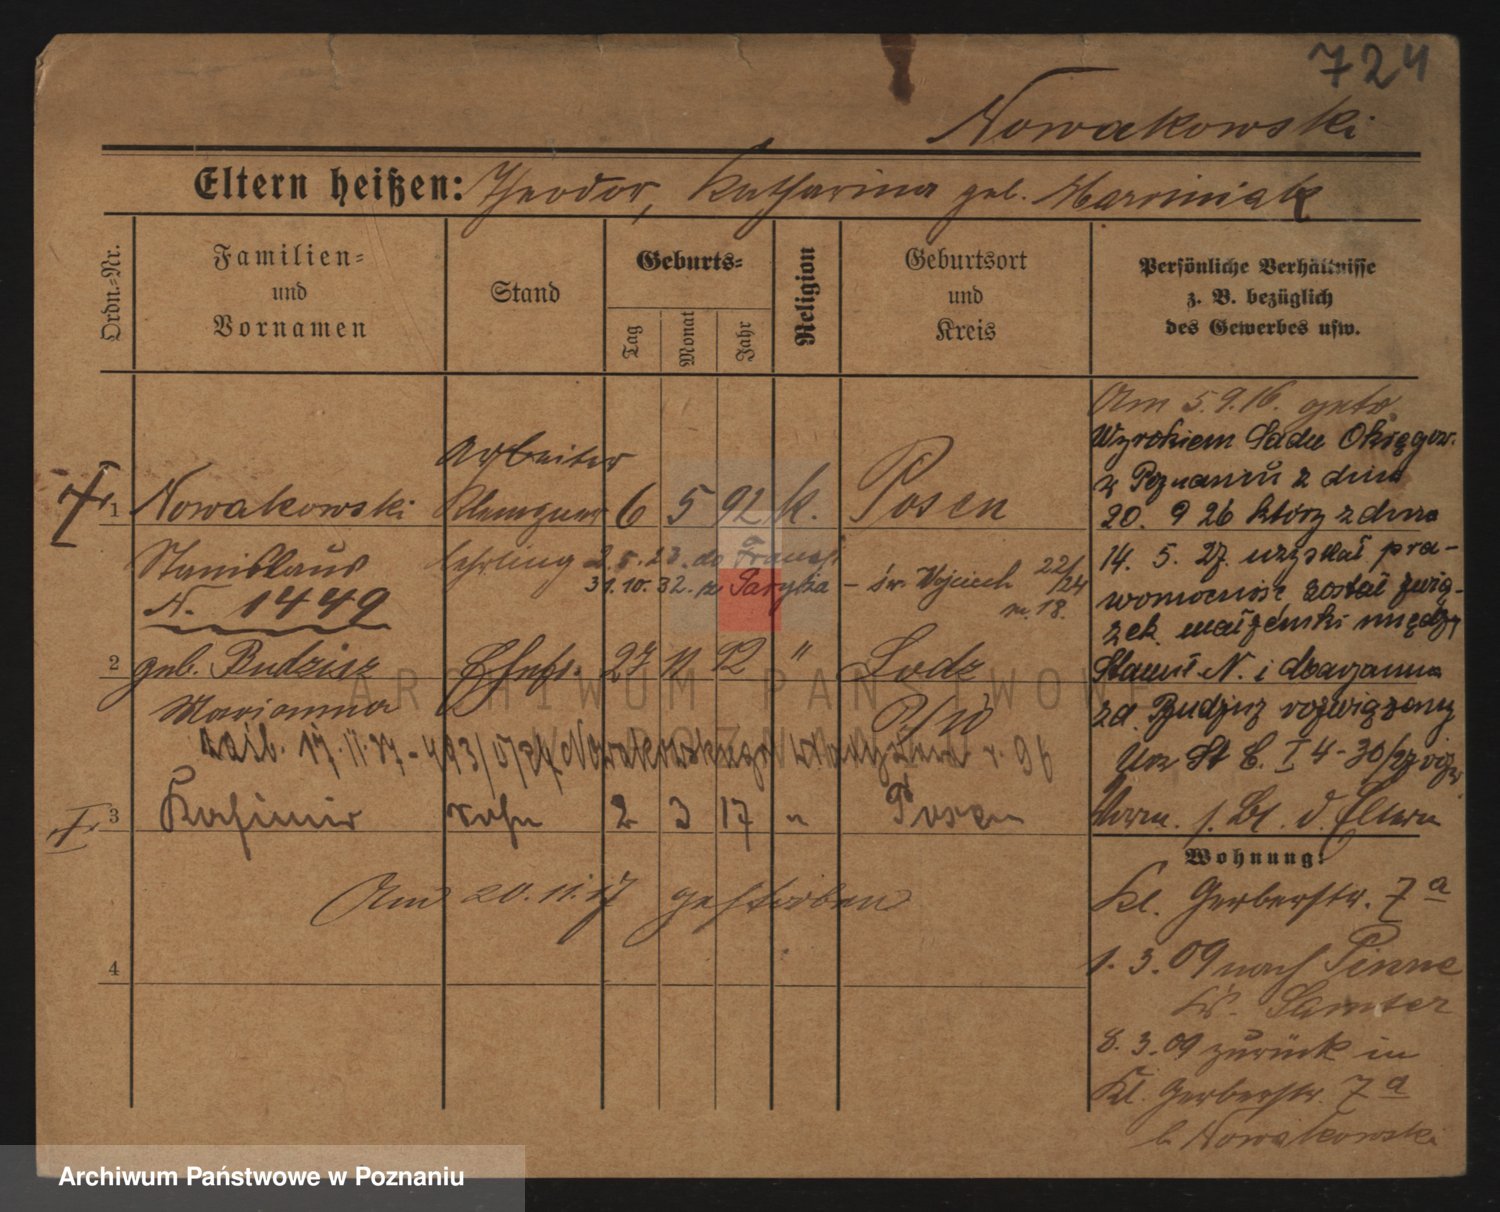 724
Nowakowski
Eltern heißen: Theodor, Katharina geb. Marciniak
Ordn.-Nr.
Familien-
und
Vornamen
Stand
Geburts-
Tag
Monat
Jahr
Religion
Geburtsort
und
Kreis
Persönliche Verhältnisse
z. B. bezüglich
des Gewerbes usw.
Am 5.9.16. getr.
Wyrokiem Sadu Okręgow.
w Poznaniu z dnia
20. 9 26 który z dnia
14. 5. 27. uzyskał pra-
womocność został zwią-
zek małżeński między
Stanisł. N. i Marjanną
zd. Budzisz rozwiązany
Arbeiter
1 Nowakowski Klempner 6 5 92 k. Posen
Stanislaus lehrling 2.5.23. do Francji
31.10.32. z Paryża – św. Wojciech 22/24
m. 18.
N. 1449
2 geb. Budzisz Ehefr. 27 11 92 " Lodz
Marianna
17.11.37 - 493/0/37 Nowakowskiego
3 Kasimir Sohn 2 3 17 " Posen
Am 20.11.17 gestorben
4
Wohnung:
Kl. Gerberstr. 7a
1.3.09 nach Pinne
Kr. Samter
8.3.09 zurück in
Kl. Gerberstr. 7a
b. Nowakowski
ARCHIWUM PAŃSTWOWE
W POZNANIU
Archiwum Państwowe w Poznaniu